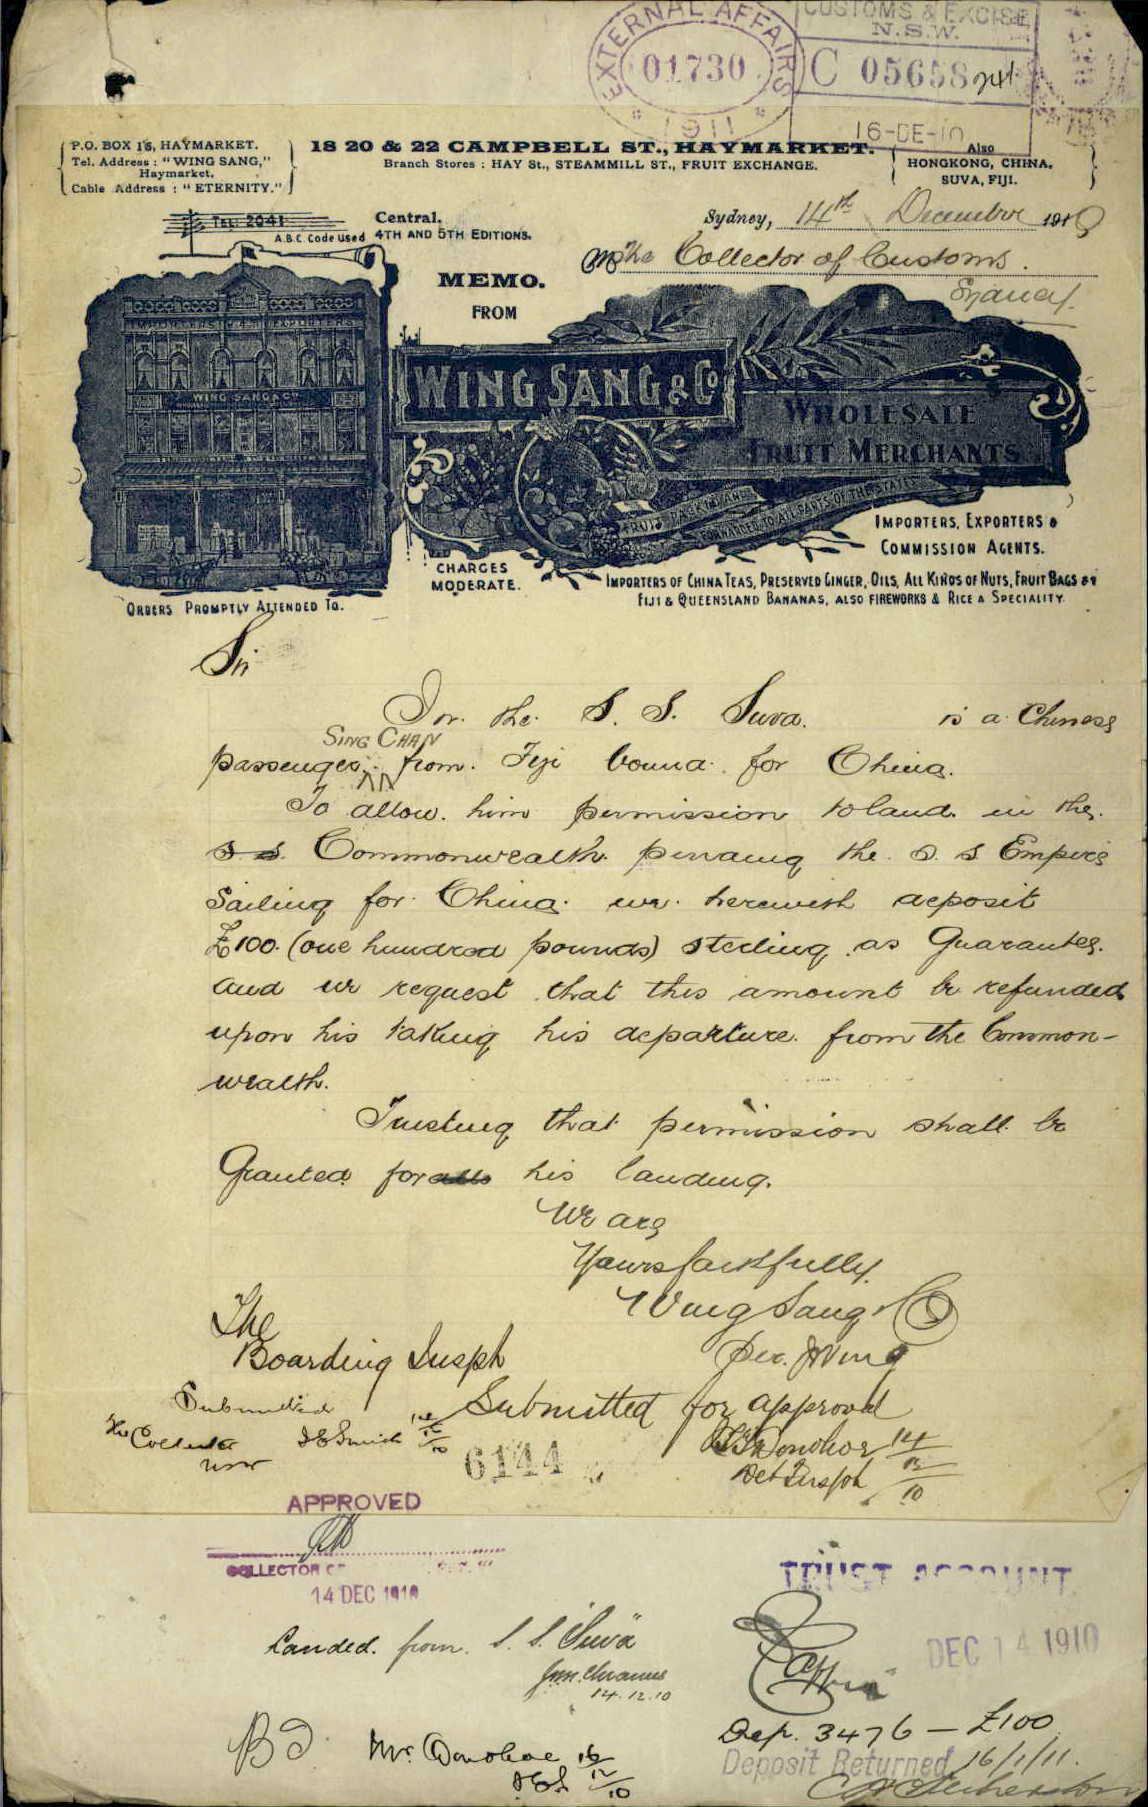 EXTERNAL AFFAIRS
01730
1911
CUSTOMS & EXCISE
N.S.W.
C 05658
16-DE-10
P.O. BOX 16, HAYMARKET.
Tel. Address : "WING SANG,"
Haymarket.
Cable Address : "ETERNITY."
18 20 & 22 CAMPBELL ST., HAYMARKET.
Branch Stores : HAY St., STEAMMILL ST., FRUIT EXCHANGE.
Also
HONGKONG, CHINA.
SUVA, FIJI.
TEL. 2041 Central.
A.B.C. Code Used 4TH AND 5TH EDITIONS.
Sydney, 14th December 1910
The Collector of Customs.
Sydney.
MEMO.
FROM
WING SANG & Co
WING SANG & Co
WHOLESALE
FRUIT MERCHANTS
FRUIT PACKED AND
FORWARDED TO ALL PARTS OF THE STATES
IMPORTERS, EXPORTERS &
COMMISSION AGENTS.
CHARGES
MODERATE.
IMPORTERS OF CHINA TEAS, PRESERVED GINGER, OILS, ALL KINDS OF NUTS, FRUIT BAGS &c
FIJI & QUEENSLAND BANANAS, ALSO FIREWORKS & RICE A SPECIALITY.
ORDERS PROMPTLY ATTENDED TO.
Sir
On the S. S. Suva. is a Chinese
SING CHAN
passenger from Fiji bound for China.
To allow him permission to land in the
S S. Commonwealth pending the S. S Empire
Sailing for China we herewith deposit
£100. (one hundred pounds) sterling as Guarantee.
and we request that this amount be refunded
upon his taking his departure from the Common-
wealth.
Trusting that permission shall be
Granted for his landing.
We are
Yours faithfully.
Wing Sang & Co
Per. J Wing
The
Boarding Insph
Submitted for approval
Submitted
The Collector
NSW
14/12/10
6144
Donohoe 14/12/10
Det Insph
APPROVED
COLLECTOR OF
14 DEC 1910
TRUST ACCOUNT
DEC 14 1910
Landed from S. S. "Suva"
14.12.10
Dep. 3476 — £100
Deposit Returned 16/1/11.
Mr. Donohoe 16/12/10